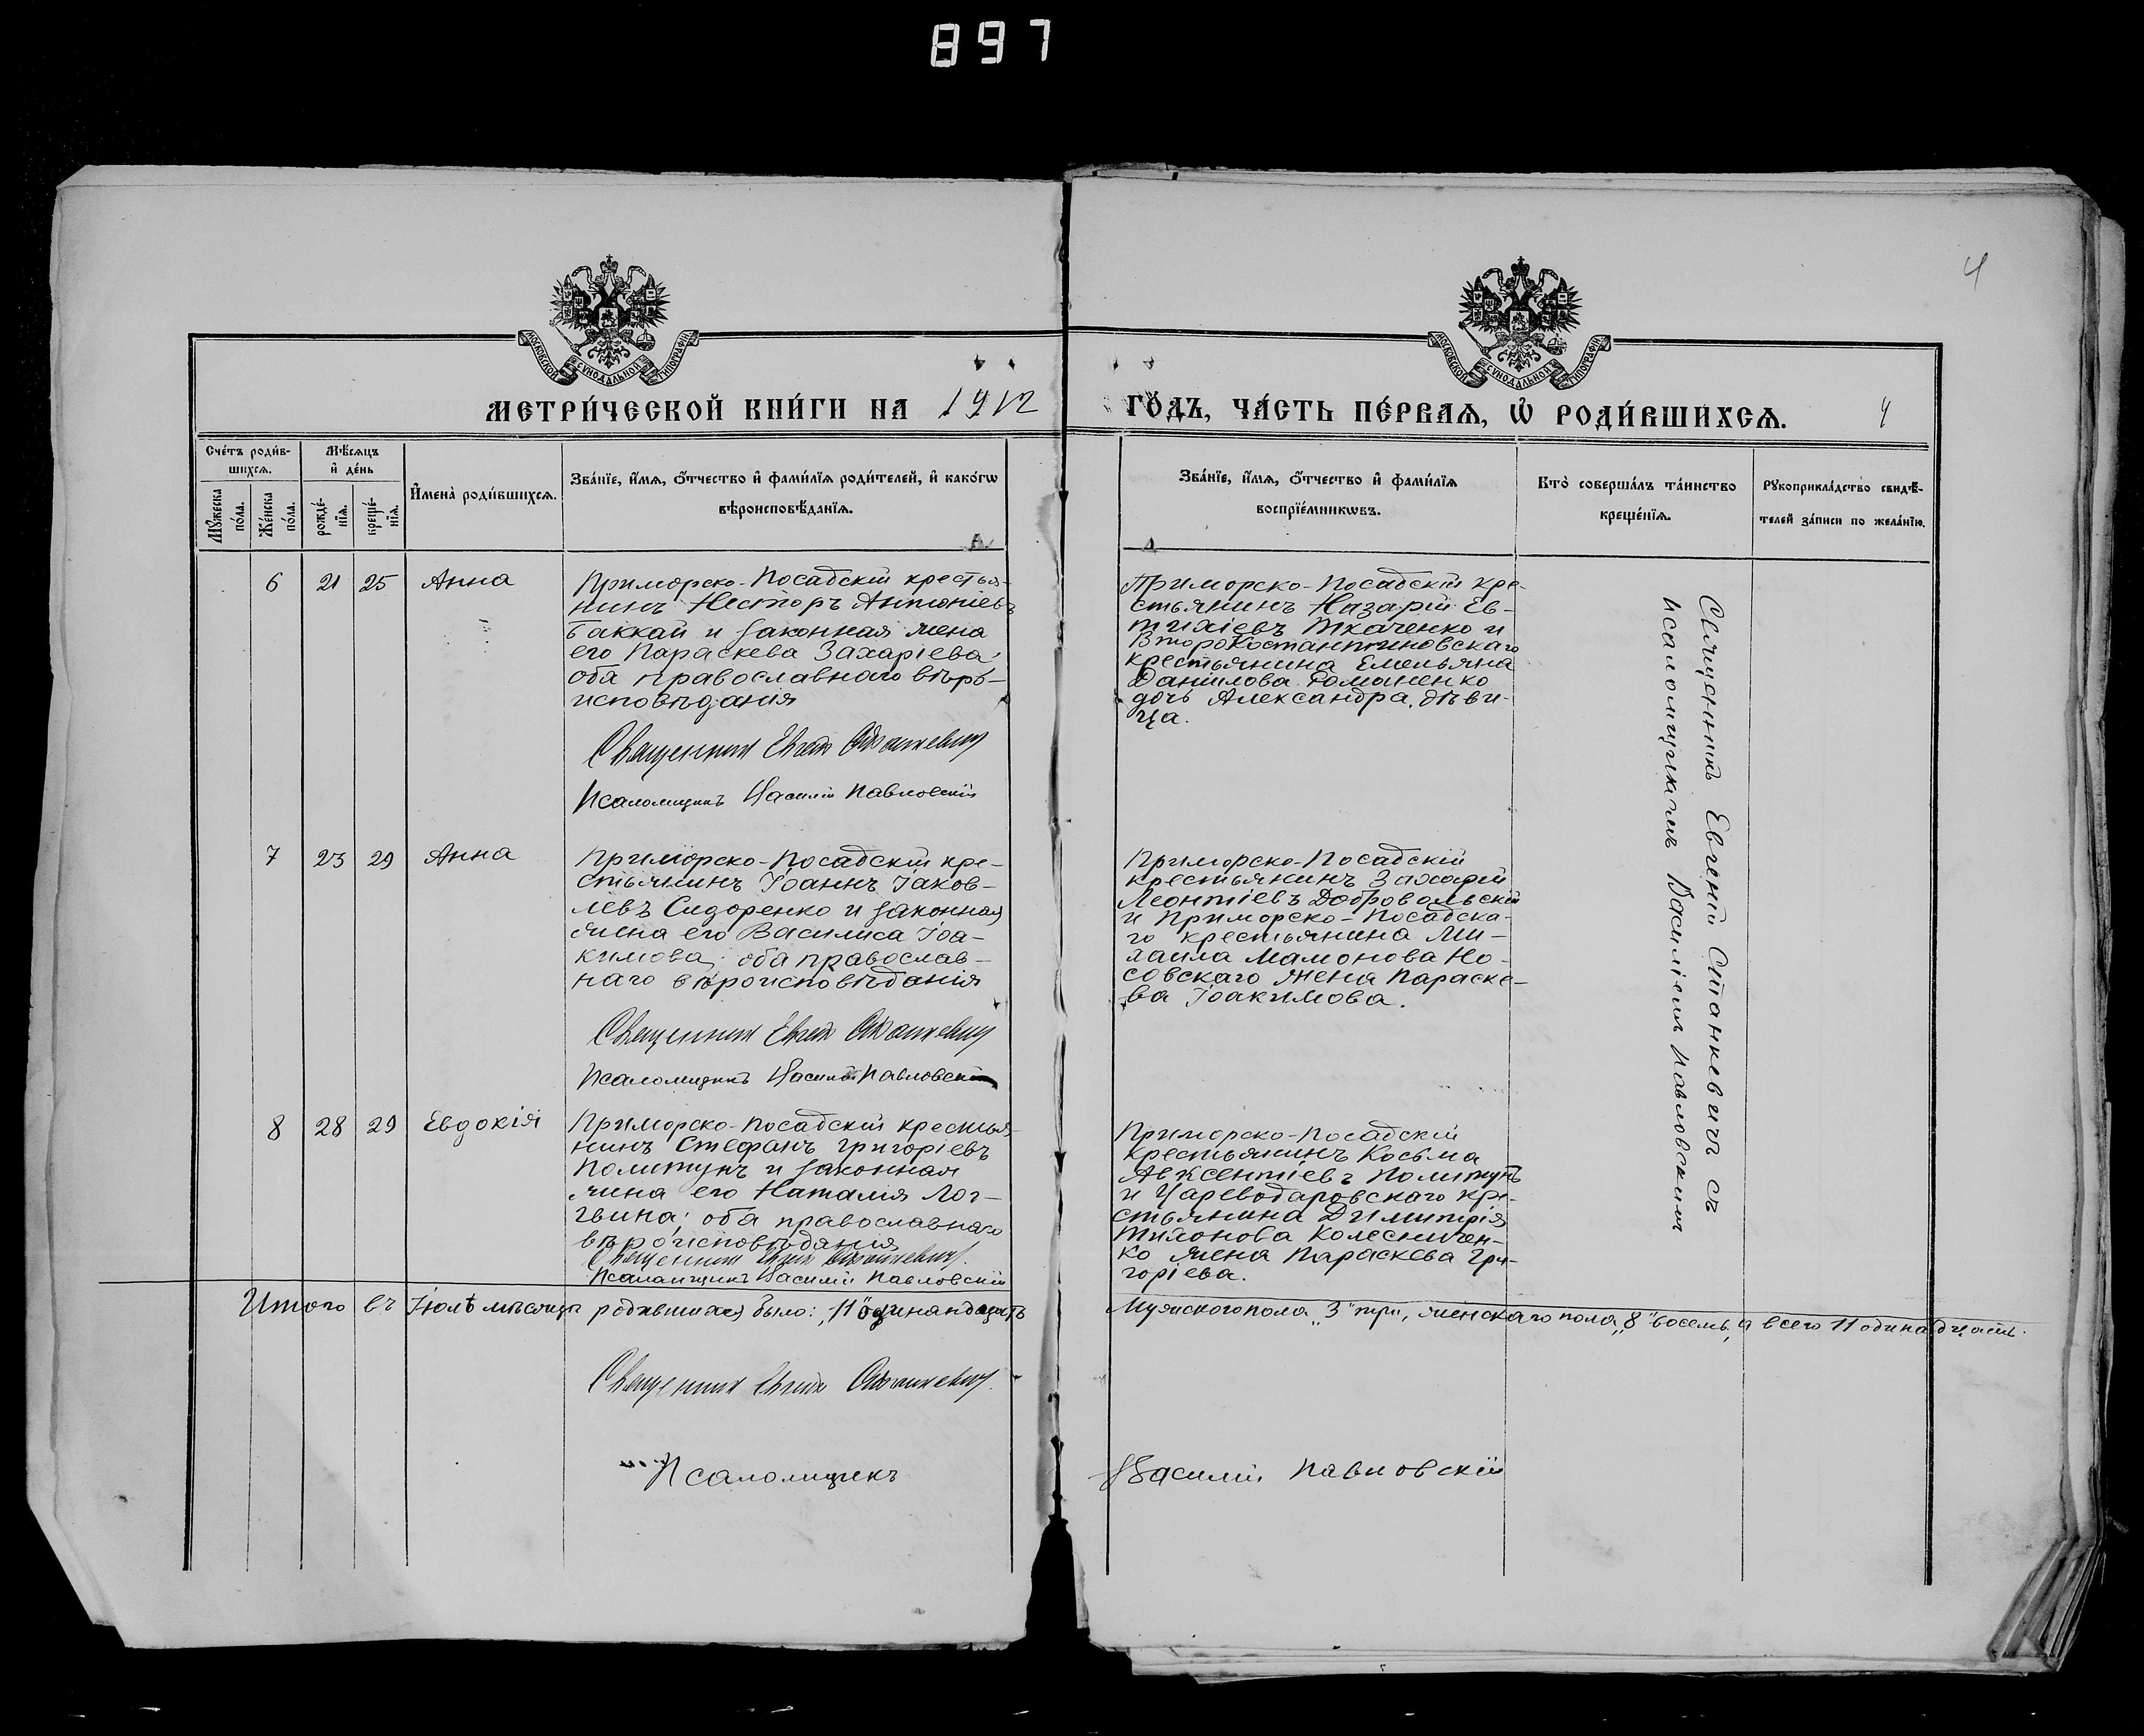 897
4
МОСКОВСКОЙ СѴНОДАЛЬНОЙ ТИПОГРАФІИ
МОСКОВСКОЙ СѴНОДАЛЬНОЙ ТИПОГРАФІИ
МЕТРИ́ЧЕСКОЙ КНИ́ГИ НА 1912 ГО́ДЪ, ЧА́СТЬ ПЕ́РВАѦ, Ѡ҆ РОДИ́ВШИХСѦ. 4
Сче́тъ роди́в-
шихсѧ.
Мѣ́сѧцъ
и҆ де́нь
Мꙋ́жеска
по́ла.
Же́нска
по́ла.
рожде́-
нїѧ.
креще́-
нїѧ.
И҆мена̀ роди́вшихсѧ.
Зва́нїе, и҆́мѧ, ѻ҆́тчество и҆ фами́лїѧ роди́телей, и҆ како́гѡ
вѣроисповѣ́данїѧ.
Зва́нїе, и҆́мѧ, ѻ҆́тчество и҆ фами́лїѧ
воспрїе́мникѡвъ.
Кто̀ соверша́лъ та́инство
креще́нїѧ.
Рꙋкоприкла́дство свидѣ́-
телей за́писи по жела́нїю.
6 21 25 Анна
Приморско-Посадскій крестья-
нинъ Несторъ Антоніевъ
Баккай и законная жена
его Параскева Захаріева;
оба православнаго вѣро-
исповѣданія
Священникъ Евгеній Станкевичъ
Псаломщикъ Василій Павловскій
Приморско-Посадскій кре-
стьянинъ Назарій Ев-
тихіевъ Ткаченко и
ВтороКостантиновскаго
крестьянина Емельяна
Данилова Романенко
дочь Александра, дѣви-
ца.
Священникъ Евгеній Станкевичъ съ
псаломщикомъ Василіемъ Павловскимъ
7 23 29 Анна
Приморско-Посадскій кре-
стьянинъ Іоаннъ Іаков-
левъ Сидоренко и законная
жена его Василиса Іоа-
кимова; оба православ-
наго вѣроисповѣданія
Священникъ Евгеній Станкевичъ
Псаломщикъ Василій Павловскій
Приморско-Посадскій
крестьянинъ Захарій
Леонтіевъ Добровольскій
и Приморско-Посадска-
го крестьянина Ми-
хаила Мамонова Но-
совскаго жена Параске-
ва Іоакимова.
8 28 29 Евдокія
Приморско-Посадскій крестья-
нинъ Стефанъ Григоріевъ
Политунъ и законная
жена его Наталія Лог-
гвина; оба православнаго
вѣроисповѣданія
Священникъ Евгеній Станкевичъ.
Псаломщикъ Василій Павловскій
Приморско-Посадскій
крестьянинъ Косьма
Авксентіевъ Политунъ
и Цареводаровскаго кре-
стьянина Димитрія
Тихонова Колесничен-
ко жена Параскева Гри-
горіева.
Итого въ Іюлѣ мѣсяцѣ родившихся было: "11" одинандцать Мужского пола "3" три, женскаго пола "8" восемь, а всего 11 одинадцать.
Священникъ Евгеній Станкевичъ.
Псаломщикъ Василій Павловскій